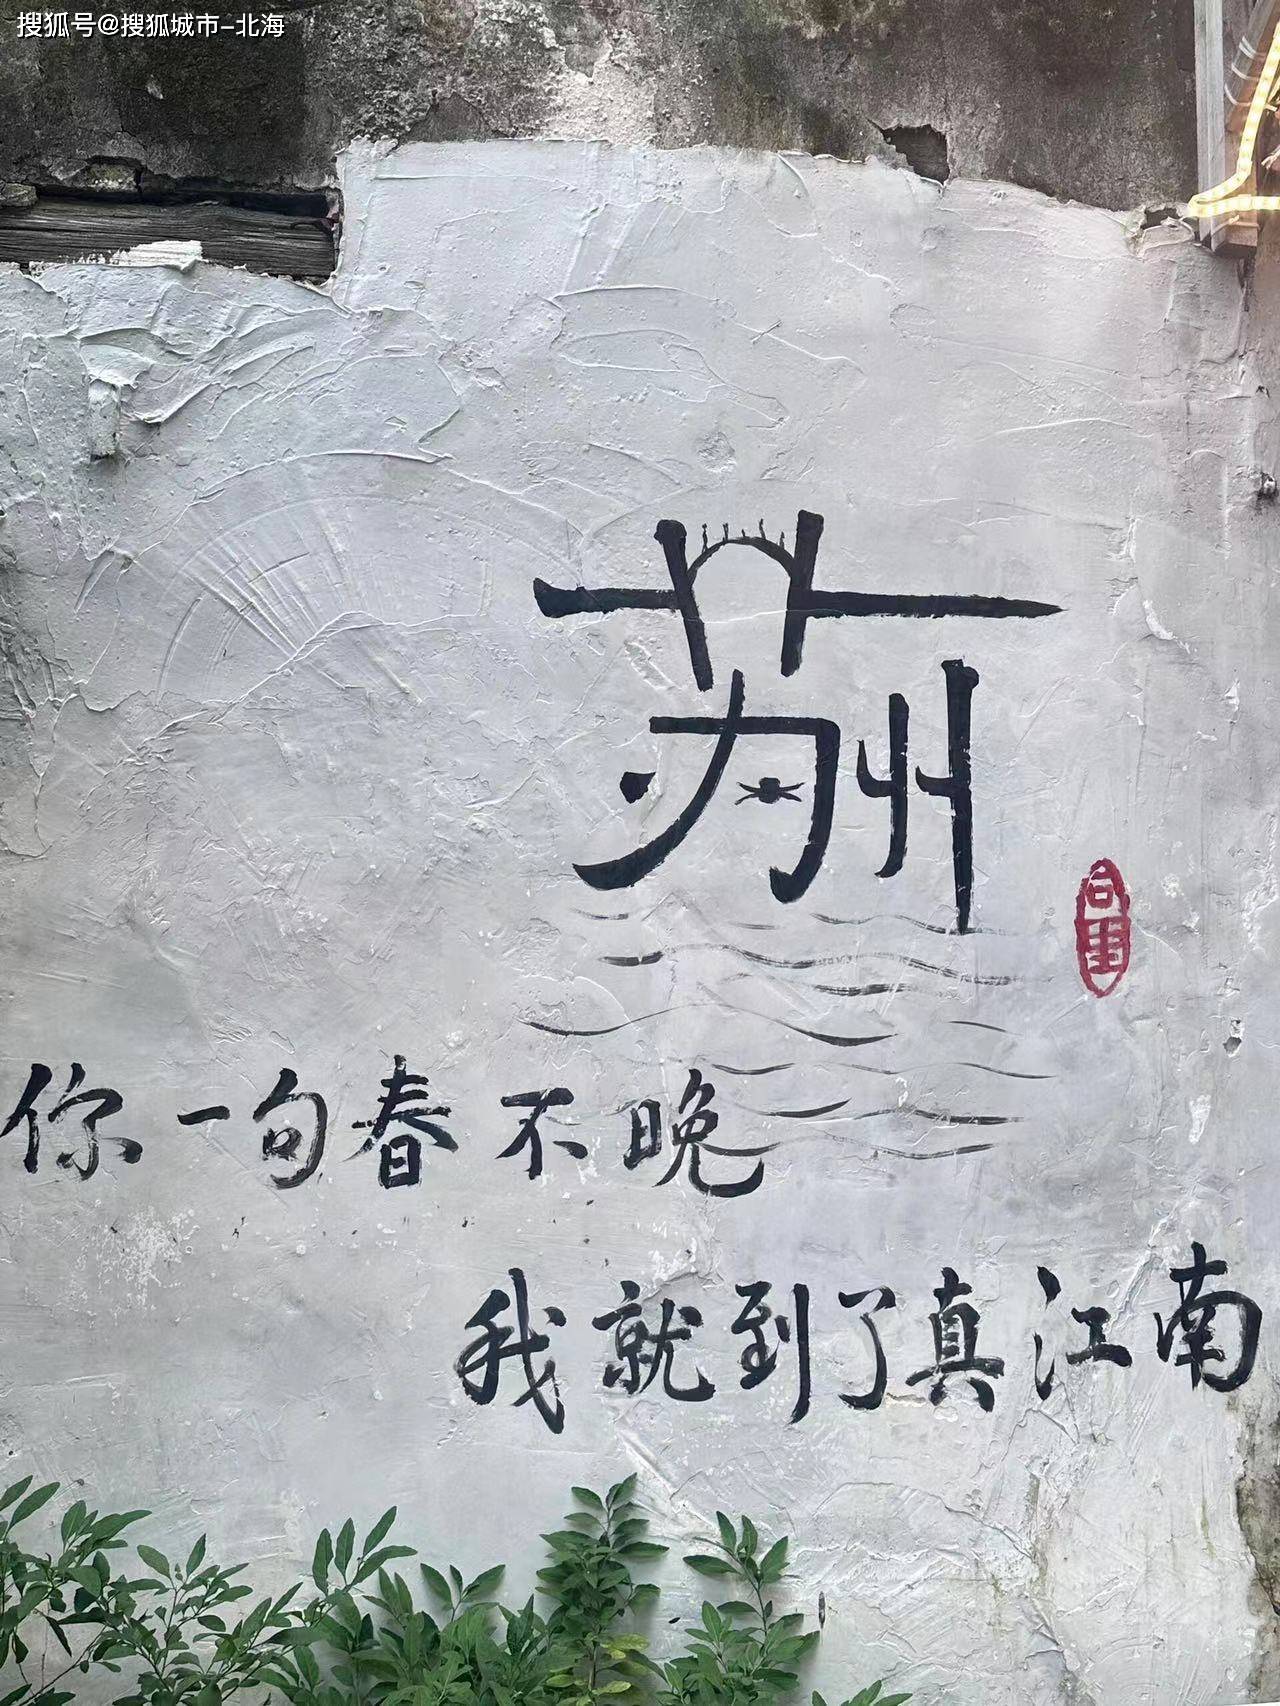 搜狐号@搜狐城市-北海
苏州
你一句春不晚
我就到了真江南